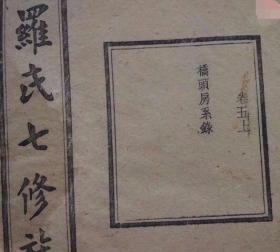 羅氏七修族
卷五上
橋頭房系錄